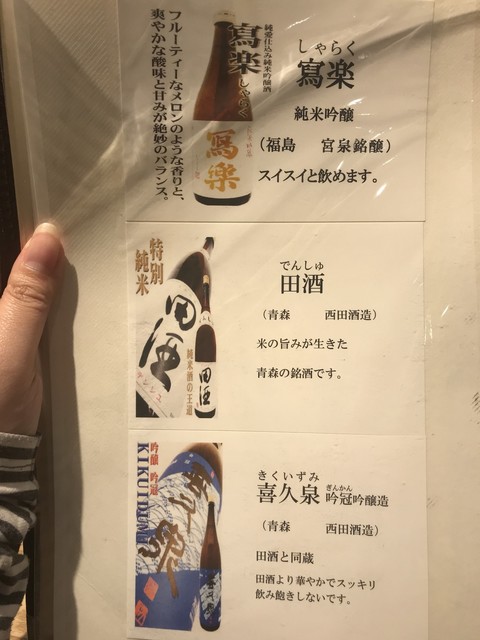 しゃらく
寫楽
純米吟醸
（福島　宮泉銘醸）
スイスイと飲めます。
純愛仕込み純米吟醸酒
寫楽 しゃらく
寫楽
フルーティーなメロンのような香りと、
爽やかな酸味と甘みが絶妙のバランス。
でんしゅ
田酒
（青森　西田酒造）
米の旨みが生きた
青森の銘酒です。
特別
純米
田酒
純米酒の王道
田酒
きくいずみ
喜久泉 吟冠吟醸造
ぎんかん
（青森　西田酒造）
田酒と同蔵
田酒より華やかでスッキリ
飲み飽きしないです。
KIKUIDUMI